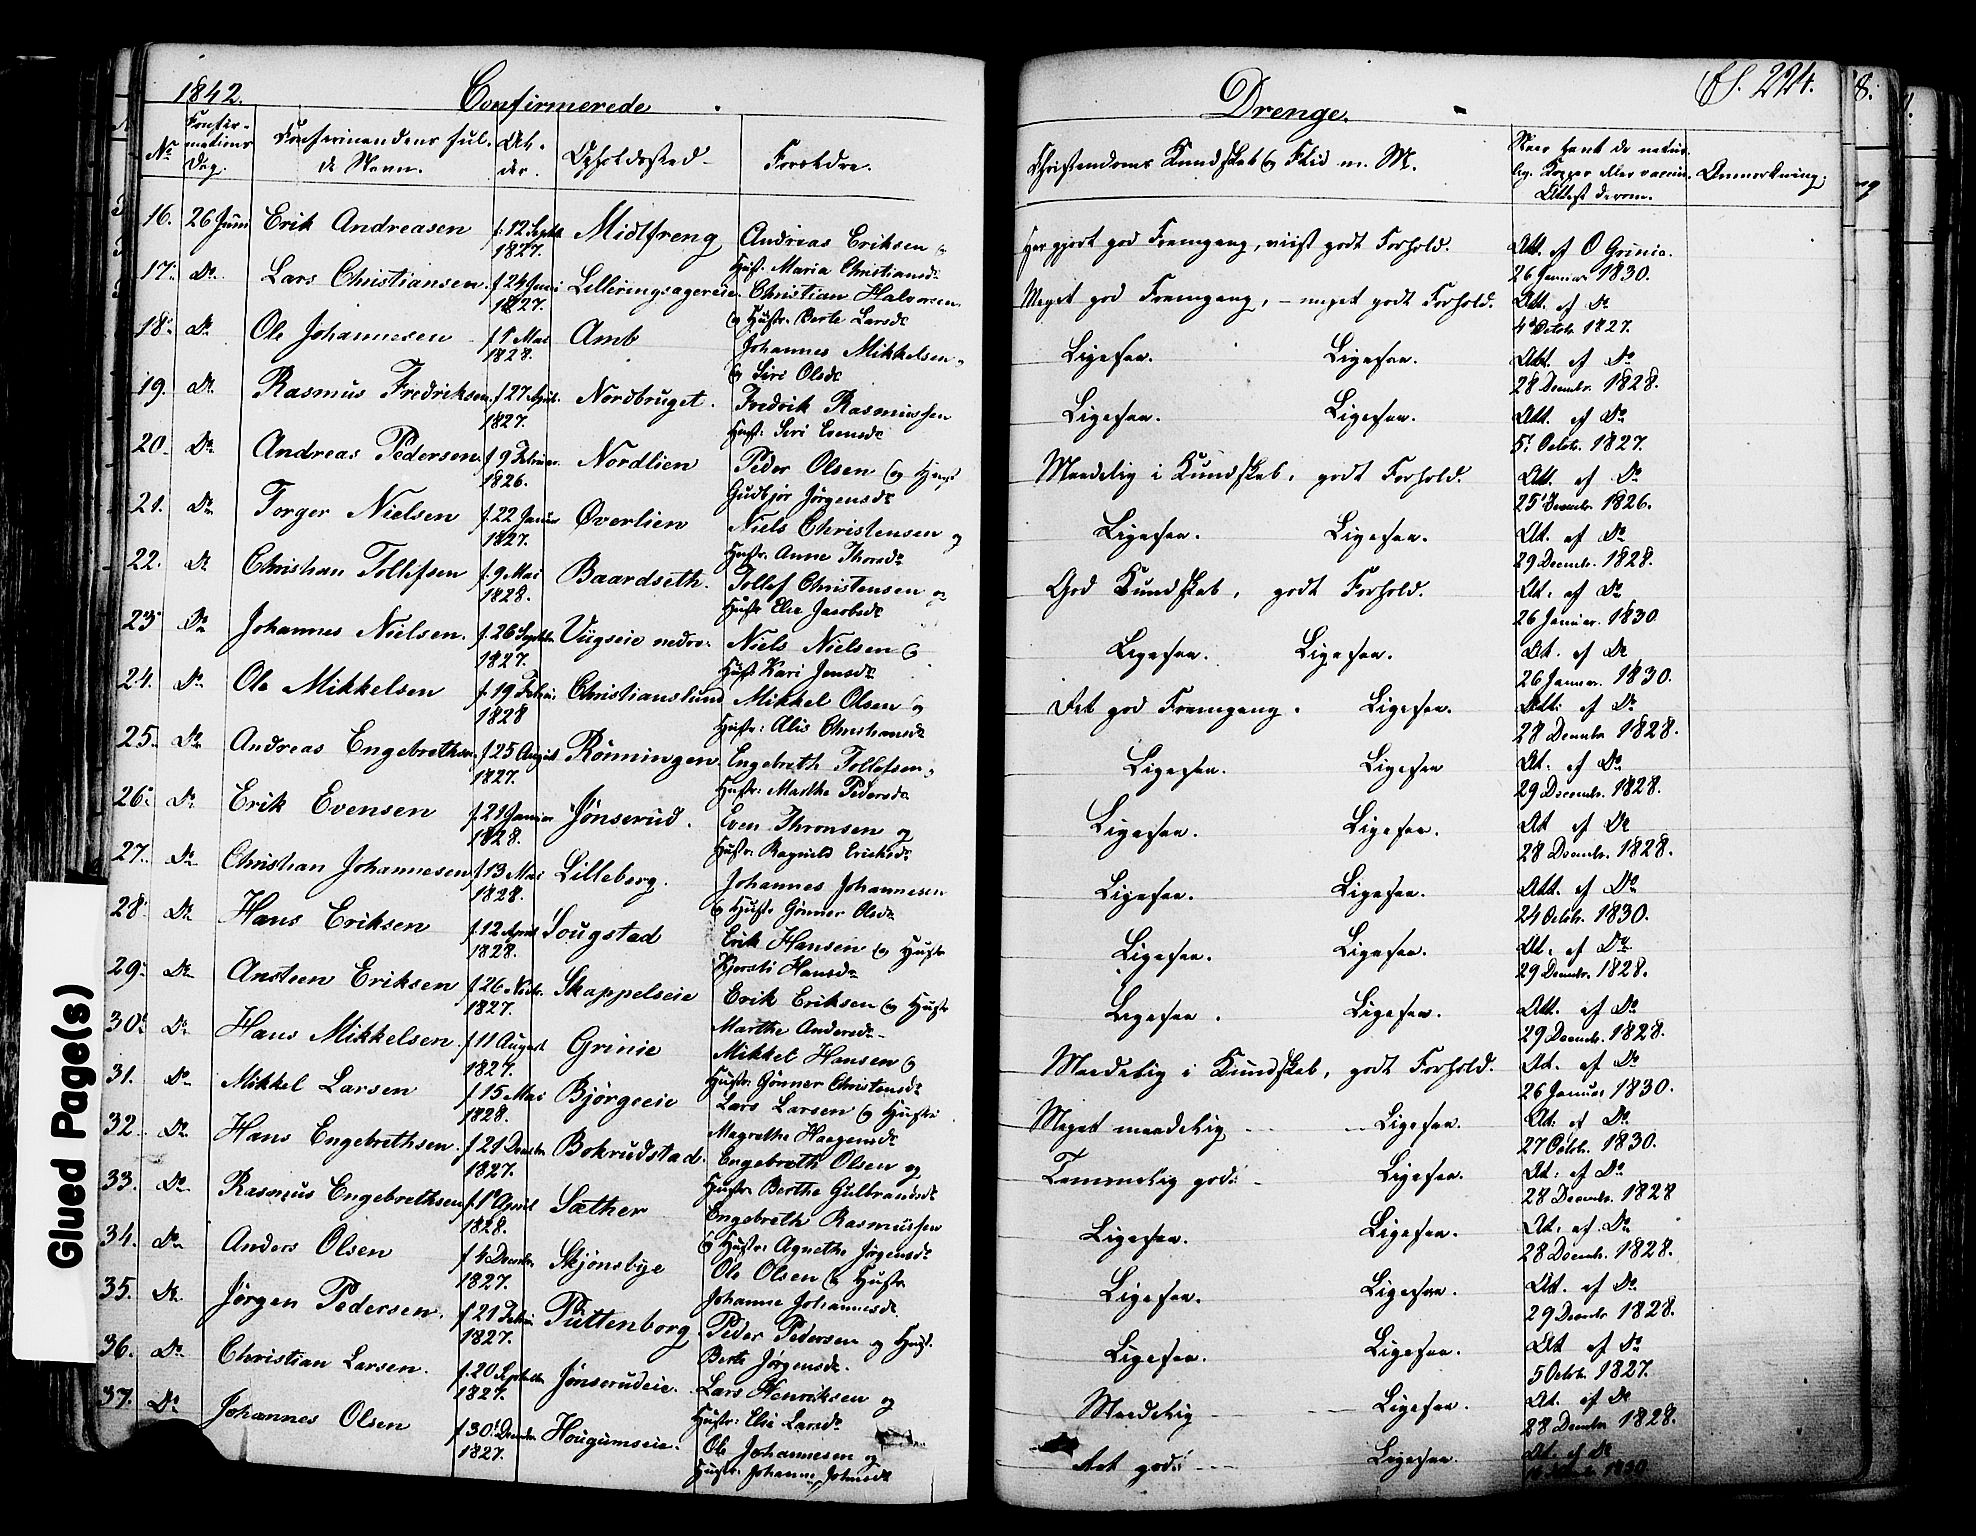 1842.
Confirmerede
Drenge.
S. 224.
No
Confir-
mations
Dag.
Confirmandens ful-
de Navn.
Al-
der.
Opholdssted.
Forældre.
Christendoms Kundskab og Flid m. M.
Naar havt de natur-
lige Kopper eller vaccin.
Attest derom.
Anmærkning.
16. 26 Juni Erik Andreasen f. 12 Septbr 1827. Midtfreng Andreas Eriksen og
Hust. Maria Christiansdr
Har gjort god Fremgang, viist godt Forhold. Att. af O Grinie.
26 Januar 1830.
17. Do Lars Christiansen f 24 Juni 1827. Lilleringsagereie Christian Halvorsen
og Hustr. Berte Larsdr
Meget god Fremgang, - meget godt Forhold. Att. af Do
4de Octobr. 1827.
18. Do Ole Johannesen f 1 Mai 1828. Amb Johannes Mikkelsen
og Siri Olsdr
Ligesaa. Ligesaa. Att. af Do
28 Decembr. 1828.
19. Do Rasmus Fredriksen f 27 April 1827. Nordbruget. Fredrik Rasmussen
Hust. Siri Evensdr
Ligesaa. Ligesaa. Att. af Do
5te Octobr. 1827.
20. Do Andreas Pedersen f 9 Februar 1826. Nordlien Peder Olsen og Hust
Gudbjør Jørgensdr
Maadelig i Kundskab, godt Forhold. Att. af Do
25 Decembr. 1826.
21. Do Torger Nielsen f. 22 Januar 1827. Øverlien Niels Christensen og
Hustr. Anne Thorsdr
Ligesaa. Ligesaa. At. af Do
29 Decembr. 1828.
22. Do Christian Tollefsen f. 9 Mai 1828. Baardseth. Tollef Christensen og
Hustr Else Jacobsdr
God Kundskab, godt Forhold. At. af Do
26 Januar. 1830
23 Do Johannes Nielsen. f. 26 Septebr 1827. Viigseie nedre. Niels Nielsen og
Hust Kari Jensdr
Ligesaa. Ligesaa. At. af Do
26 Januar. 1830.
24. Do Ole Mikkelsen f. 19 Februar 1828 Christianslund Mikkel Olsen og
Hustr: Alis Christiansdr
Det god Fremgang. Ligesaa. Att: af Do
28 Decembr 1828.
25. Do Andreas Engebrethsen f 25 August 1827. Rønningen Engebreth Tollefsen
Hustr: Marthe Pedersdr
Ligesaa. Ligesaa At. af Do
29 Decembr. 1828.
26. Do Erik Evensen f. 21 Januar 1828. Jønserud. Even Thronsen og
Hustr. Ragnild Eriksdr
Ligesaa. Ligesaa. At af Do
28 Decembr. 1828.
27. Do Christian Johannesen f 13 Mai 1828. Lilleberg. Johannes Johannesen
og Hustr Gønner Olsdr
Ligesaa. Ligesaa. Att. af Do
24 Octobr. 1830.
28. Do Hans Eriksen f. 12 April 1828. Sougstad Erik Hansen og Hustr
Kjersti Hansdr
Ligesaa. Ligesaa. At. af Do
29 Decembr. 1828.
29. Do Ansteen Eriksen f 26 Novbr. 1827. Skappelseie Erik Eriksen og Hustr
Marthe Andersdr
Ligesaa. Ligesaa. Att. af Do
29 Decembr. 1828.
30. Do Hans Mikkelsen. f 11 August 1827. Grinie Mikkel Hansen og
Hustr. Gønner Christensdr
Maadelig i Kundskab, godt Forhold. At. af Do
26 Januar 1830.
31. Do Mikkel Larsen f 15 Mai 1828. Bjørgeeie Lars Larsen og Hustr
Magrethe Haagensdr
Meget maadelig Ligesaa. At. af Do
27 Octobr. 1830.
32 Do Hans Engebrethsen. f 21 Decembr 1827. Bokrudstad. Engebreth Olsen og
Hustr. Berthe Gulbrandsdr
Temmelig god: Ligesaa. At: af Do
28 Decembr. 1828
33. Do Rasmus Engebrethsen f. 1 April 1828. Sæther Engebreth Rasmussen
og Hustr: Agnethe Jørgensdr
Ligesaa. Ligesaa. At. af Do
28 Decembr. 1828.
34. Do Anders Olsen f 4 Decembr 1827. Skjønsbye Ole Olsen og Hustr
Johanne Johannesdr
Ligesaa. Ligesaa. At. af Do
29 Decembr 1828.
35. Do Jørgen Pedersen. f 21 Februar 1827. Puttenborg Peder Pedersen og Hust.
Berte Jørgensdr.
Ligesaa. Ligesaa. At af Do
5 Octobr. 1827.
36. Do Christian Larsen. f. 20 Septebr 1827. Jønserudeie. Lars Henriksen og
Hustr: Else Larsdr
Maadelig Ligesaa. At. af Do
28 Decembr 1828.
37. Do Johannes Olsen f 30 Decembr 1827. Hougumseie. Ole Johannesen og
Hustr. Johanne Johnsdr
Det god: Ligesaa. At. af Do
1830
Glued Page(s)